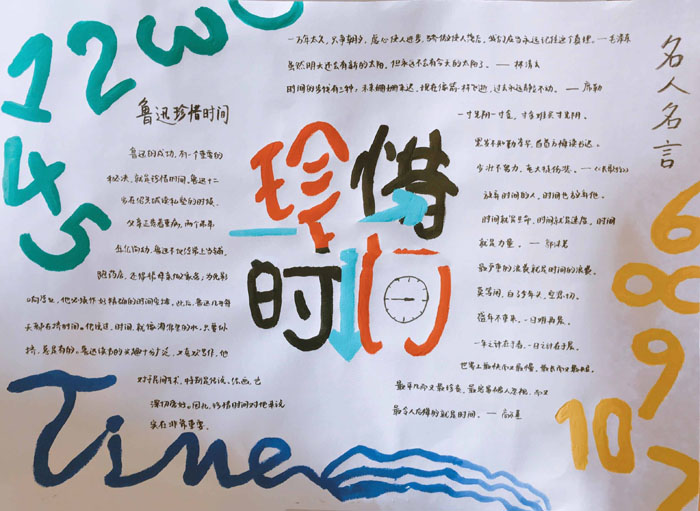 1 2 3
4 5
鲁迅珍惜时间
鲁迅的成功,有一个重要的
秘诀,就是珍惜时间,鲁迅十二
岁在绍兴城读私塾的时候,
父亲正患着重病,两个弟弟
年幼,鲁迅不仅经常上当铺,
跑药店,还
时间就像海绵里的水,只要你
挤,总是有的。鲁迅读书的兴趣十分广泛,又喜欢写作,他
对于民间艺术,特别是传说、绘画,也
深切爱好。因此,珍惜时间对他来说
实在非常重要。
珍惜
时间
Time
名人名言
一万年太久,只争朝夕,虚心使人进步,骄傲使人落后,我们应当永远记住这个真理。——毛泽东
虽然明天还会有新的太阳,但永远不会有今天的太阳了。——林清玄
时间的步伐有三种:未来姗姗来迟,现在像箭一样飞逝,过去永远静立不动。——席勒
一寸光阴一寸金,寸金难买寸光阴。
黑发不知勤学早,白首方悔读书迟。
少壮不努力,老大徒伤悲。——《长歌行》
放弃时间的人,时间也放弃他。
时间就是生命,时间就是速度,时间
就是力量。——郭沫若
最严重的浪费就是时间的浪费。
莫等闲,白了少年头,空悲切。
盛年不重来,一日难再晨。
一年之计在于春,一日之计在于晨。
世界上最快而又最慢,最长而又最短,
最平凡而又最珍贵,最易忽视人忽视,而又
最令人后悔的就是时间。——高尔基
6
8
9
10
7